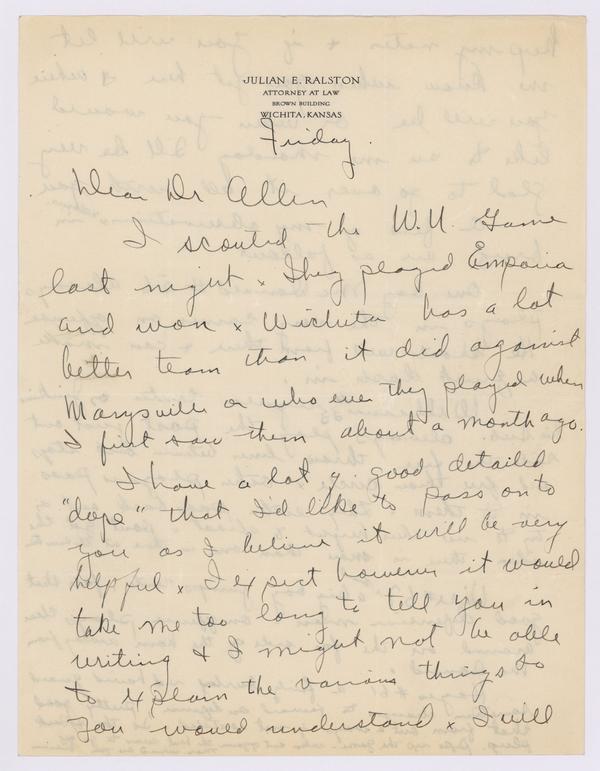 JULIAN E. RALSTON
ATTORNEY AT LAW
BROWN BUILDING
WICHITA, KANSAS
Friday.
Dear Dr Allen
I scouted the W.U. Game
last night x They played Emporia
and won x Wichita has a lot
better team than it did against
Marysville or who ever they played when
I first saw them about a month ago.
I have a lot of good detailed
"dope" that I'd like to pass on to
you as I believe it will be very
helpful x I expect however it would
take me too long to tell you in
writing & I might not be able
to explain the various things so
you would understand x I will